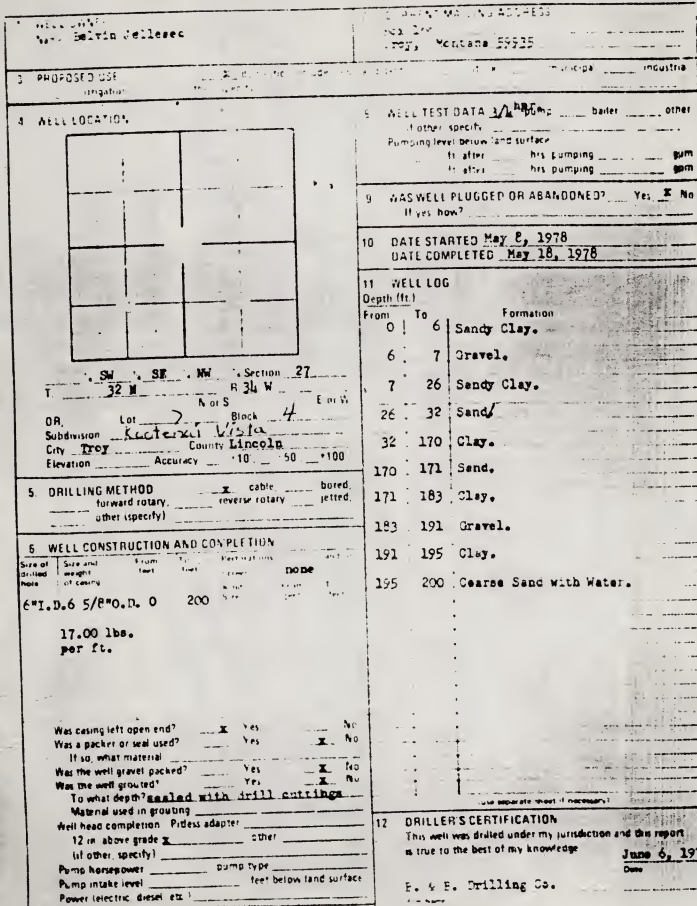 Belvin Jellesec
Troy, Montana 59935
3 PROPOSED USE
irrigation municipal industria
4 WELL LOCATION
SW SE NW Section 27
T. 32 N R 34 W
N or S E or W
OR, Lot 7 Block 4
Subdivision Kootenai Vista
City Troy County Lincoln
Elevation Accuracy 10 50 100
5. DRILLING METHOD x cable, bored,
forward rotary, reverse rotary jetted,
other (specify)
6 WELL CONSTRUCTION AND COMPLETION
Size of drilled hole Size and weight of casing From feet To feet Perforations
none
6"I.D.6 5/8"O.D. 0 200
17.00 lbs.
per ft.
Was casing left open end? x Yes No
Was a packer or seal used? Yes x No
If so, what material
Was the well gravel packed? Yes x No
Was the well grouted? Yes x No
To what depth? sealed with drill cuttings
Material used in grouting
Well head completion Pitless adapter
12 in above grade x other
(if other, specify)
Pump horsepower pump type
Pump intake level feet below land surface
Power (electric, diesel, etc.)
WELL TEST DATA pump bailer other
if other specify
Pumping level below land surface
ft after hrs pumping gpm
ft after hrs pumping gpm
9 WAS WELL PLUGGED OR ABANDONED? Yes X No
If yes how?
10 DATE STARTED May 8, 1978
DATE COMPLETED May 18, 1978
11 WELL LOG
Depth (ft.)
From To Formation
0 6 Sandy Clay.
6 7 Gravel.
7 26 Sandy Clay.
26 32 Sand
32 170 Clay.
170 171 Sand.
171 183 Clay.
183 191 Gravel.
191 195 Clay.
195 200 Coarse Sand with Water.
(use separate sheet if necessary)
12 DRILLER'S CERTIFICATION
This well was drilled under my jurisdiction and this report
is true to the best of my knowledge
June 6, 197
Date
E. & E. Drilling Co.